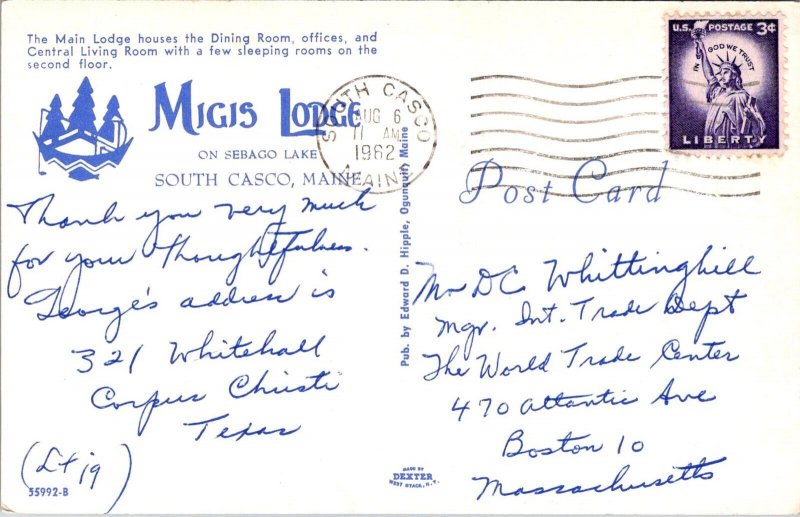 The Main Lodge houses the Dining Room, offices, and
Central Living Room with a few sleeping rooms on the
second floor.
MIGIS LODGE
ON SEBAGO LAKE
SOUTH CASCO, MAINE
Thank you very much
for your thoughtfulness.
George's address is
321 Whitehall
Corpus Christi
Texas
55992-B
Pub. by Edward D. Hipple, Ogunquit, Maine
MADE BY
DEXTER
WEST NYACK, N.Y.
SOUTH CASCO
AUG 6
11 AM
1962
MAINE
U.S. POSTAGE 3¢
IN GOD WE TRUST
LIBERTY
Post Card
Mr DC Whittinghill
Mgr. Int. Trade Dept
The World Trade Center
470 Atlantic Ave
Boston 10
Massachusetts